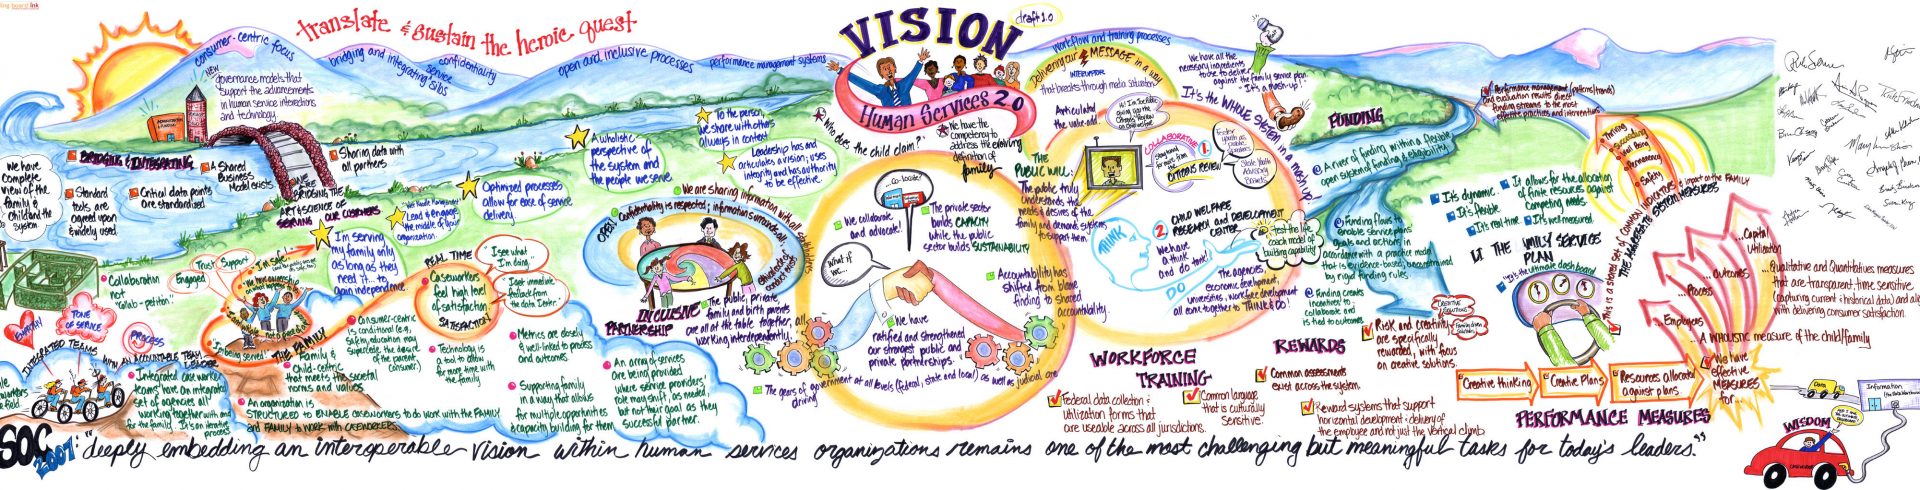 translate & sustain the heroic quest
VISION
draft 1.0
Human Services 2.0
consumer-centric focus
bridging and integrating silos
service
confidentiality
open and inclusive processes
performance management systems
workflow and training processes
NEW
governance models that
support the advancements
in human service interactions
and technology
BRIDGING & INTEGRATING
Standard
tools are
agreed upon
& widely used
A Shared
Business
Model exists
Critical data points
are standardized
Sharing data with
all partners
We have
complete
view of the
family &
child and the
system
WE ARE
BRIDGING THE
ART & SCIENCE OF
SERVING OUR CUSTOMERS
A wholistic
perspective of
the system and
the people we serve.
To the person,
we share with others
always in context
Leadership has and
articulates a vision; uses
integrity and has authority
to be effective.
Optimized processes
allow for ease of service
delivery.
Lead & engage
the middle of your
organization
I'm serving
my family only
as long as they
need it... to
gain independence.
Collaboration
not
"Collab-petition"
Engaged
Trust
Support
"I'm safe."
"I'm being served."
THE FAMILY
REAL TIME
"I see what
I'm doing..."
Caseworkers
feel high level
of satisfaction
SATISFACTION
I get immediate
feedback from
the data. Faster.
EMPATHY
TONE OF
SERVICE
PROCESS
INTEGRATED TEAMS WITH AN ACCOUNTABLE TEAM
LEADER
Integrated case worker
teams have an integrated
set of agencies all
working together with and
for the family. It's an iterative
process
Family &
child-centric
that meets the societal
norms and values
Consumer-centric
is conditional (e.g.
safety, education may
supercede the desire
of the parent
consumer.)
An organization is
STRUCTURED TO ENABLE CASEWORKERS to do work with the FAMILY
and FAMILY to work with CASEWORKERS.
Technology is
a tool to allow
for more time with
the family
Metrics are closely
& well-linked to process
and outcomes.
Supporting family
in a way that allows
for multiple opportunities
& capacity building for them
An array of services
are being provided
where service providers
role may shift, as needed,
but not their goal as they
successful partner.
We are sharing information with all stakeholders
OPEN
Confidentiality is respected; information is shared
INCLUSIVE
PARTNERSHIP
The public, private,
family and birth parents
are all at the table together, all
working interdependently.
Who does the child claim?
We have the
competency to
address the evolving
definition of
family
...Co-locate?
We collaborate
and advocate!
The private sector
builds CAPACITY
while the public
sector builds SUSTAINABILITY
What if
we...
We have
ratified and strengthened
our strongest public and
private partnerships.
The gears of government at all levels (federal, state and local) as well as judicial are
driving
Accountability has
shifted from blame
finding to shared
accountability.
THE
PUBLIC WILL:
The public truly
understands the
needs & desires of the
family and demands systems
to support them.
Delivering our MESSAGE in a way
INTERRUPTOR
that breaks through media saturation
Articulated
the value-add
COLLABORATIVE
1.
CITIZENS REVIEW
State Youth
Advisory
Boards
We have all the
necessary ingredients
to be to deliver
against the family service plan.
"It's a mash-up!"
It's the WHOLE SYSTEM in a mash up!
THINK
DO
2
CHILD WELFARE
RESEARCH and DEVELOPMENT
CENTER
We have
a think
and do tank!
The agencies,
economic development,
universities, workforce development
all come together to THINK & DO!
test the life
coach model of
building capability
FUNDING
A river of funding within a flexible
open system of funding & eligibility
Funding flows to
enable service plans'
goals and actions in
accordance with a practice model
that is evidence-based, unconstrained
by rigid funding rules.
Funding creates
incentives to
collaborate and
is tied to outcomes
Performance management (patterns/trends)
and evaluation results direct
funding streams to the most
effective practices and interventions
It's dynamic
It's flexible
It's real time
It allows for the allocation
of finite resources against
competing needs.
It's well-measured
THE FAMILY SERVICE
PLAN
"It's the ultimate dash board"
Thriving
Succeeding
Well Being
Permanency
Safety
This is a shared set of COMMON INDICATORS & impact on the FAMILY
The MACRO STATE SYSTEM MEASURES
WORKFORCE
TRAINING
Federal data collection &
utilization forms that
are useable across all jurisdictions.
Common language
that is culturally
sensitive.
REWARDS
Common assessments
exist across the system.
Reward systems that support
horizontal development & delivery of
the employee and not just the vertical climb
Risk and creativity
are specifically
rewarded, with focus
on creative solutions.
CREATIVE
SOLUTIONS
Creative thinking
Creative Plans
Resources allocated
against plans
We have
effective
MEASURES
for...
PERFORMANCE MEASURES
...Capital
Utilization
...Outcomes
...Process
...Employees
...Qualitative and Quantitative measures
that are transparent, time sensitive
(capturing current & historical data) and ali
with delivering consumer satisfaction.
A WHOLISTIC measure of the child/family
DATA
Information
WISDOM
CASEWORKER
SOC
2007: "deeply embedding an interoperable vision within human services organizations remains one of the most challenging but meaningful tasks for today's leaders."